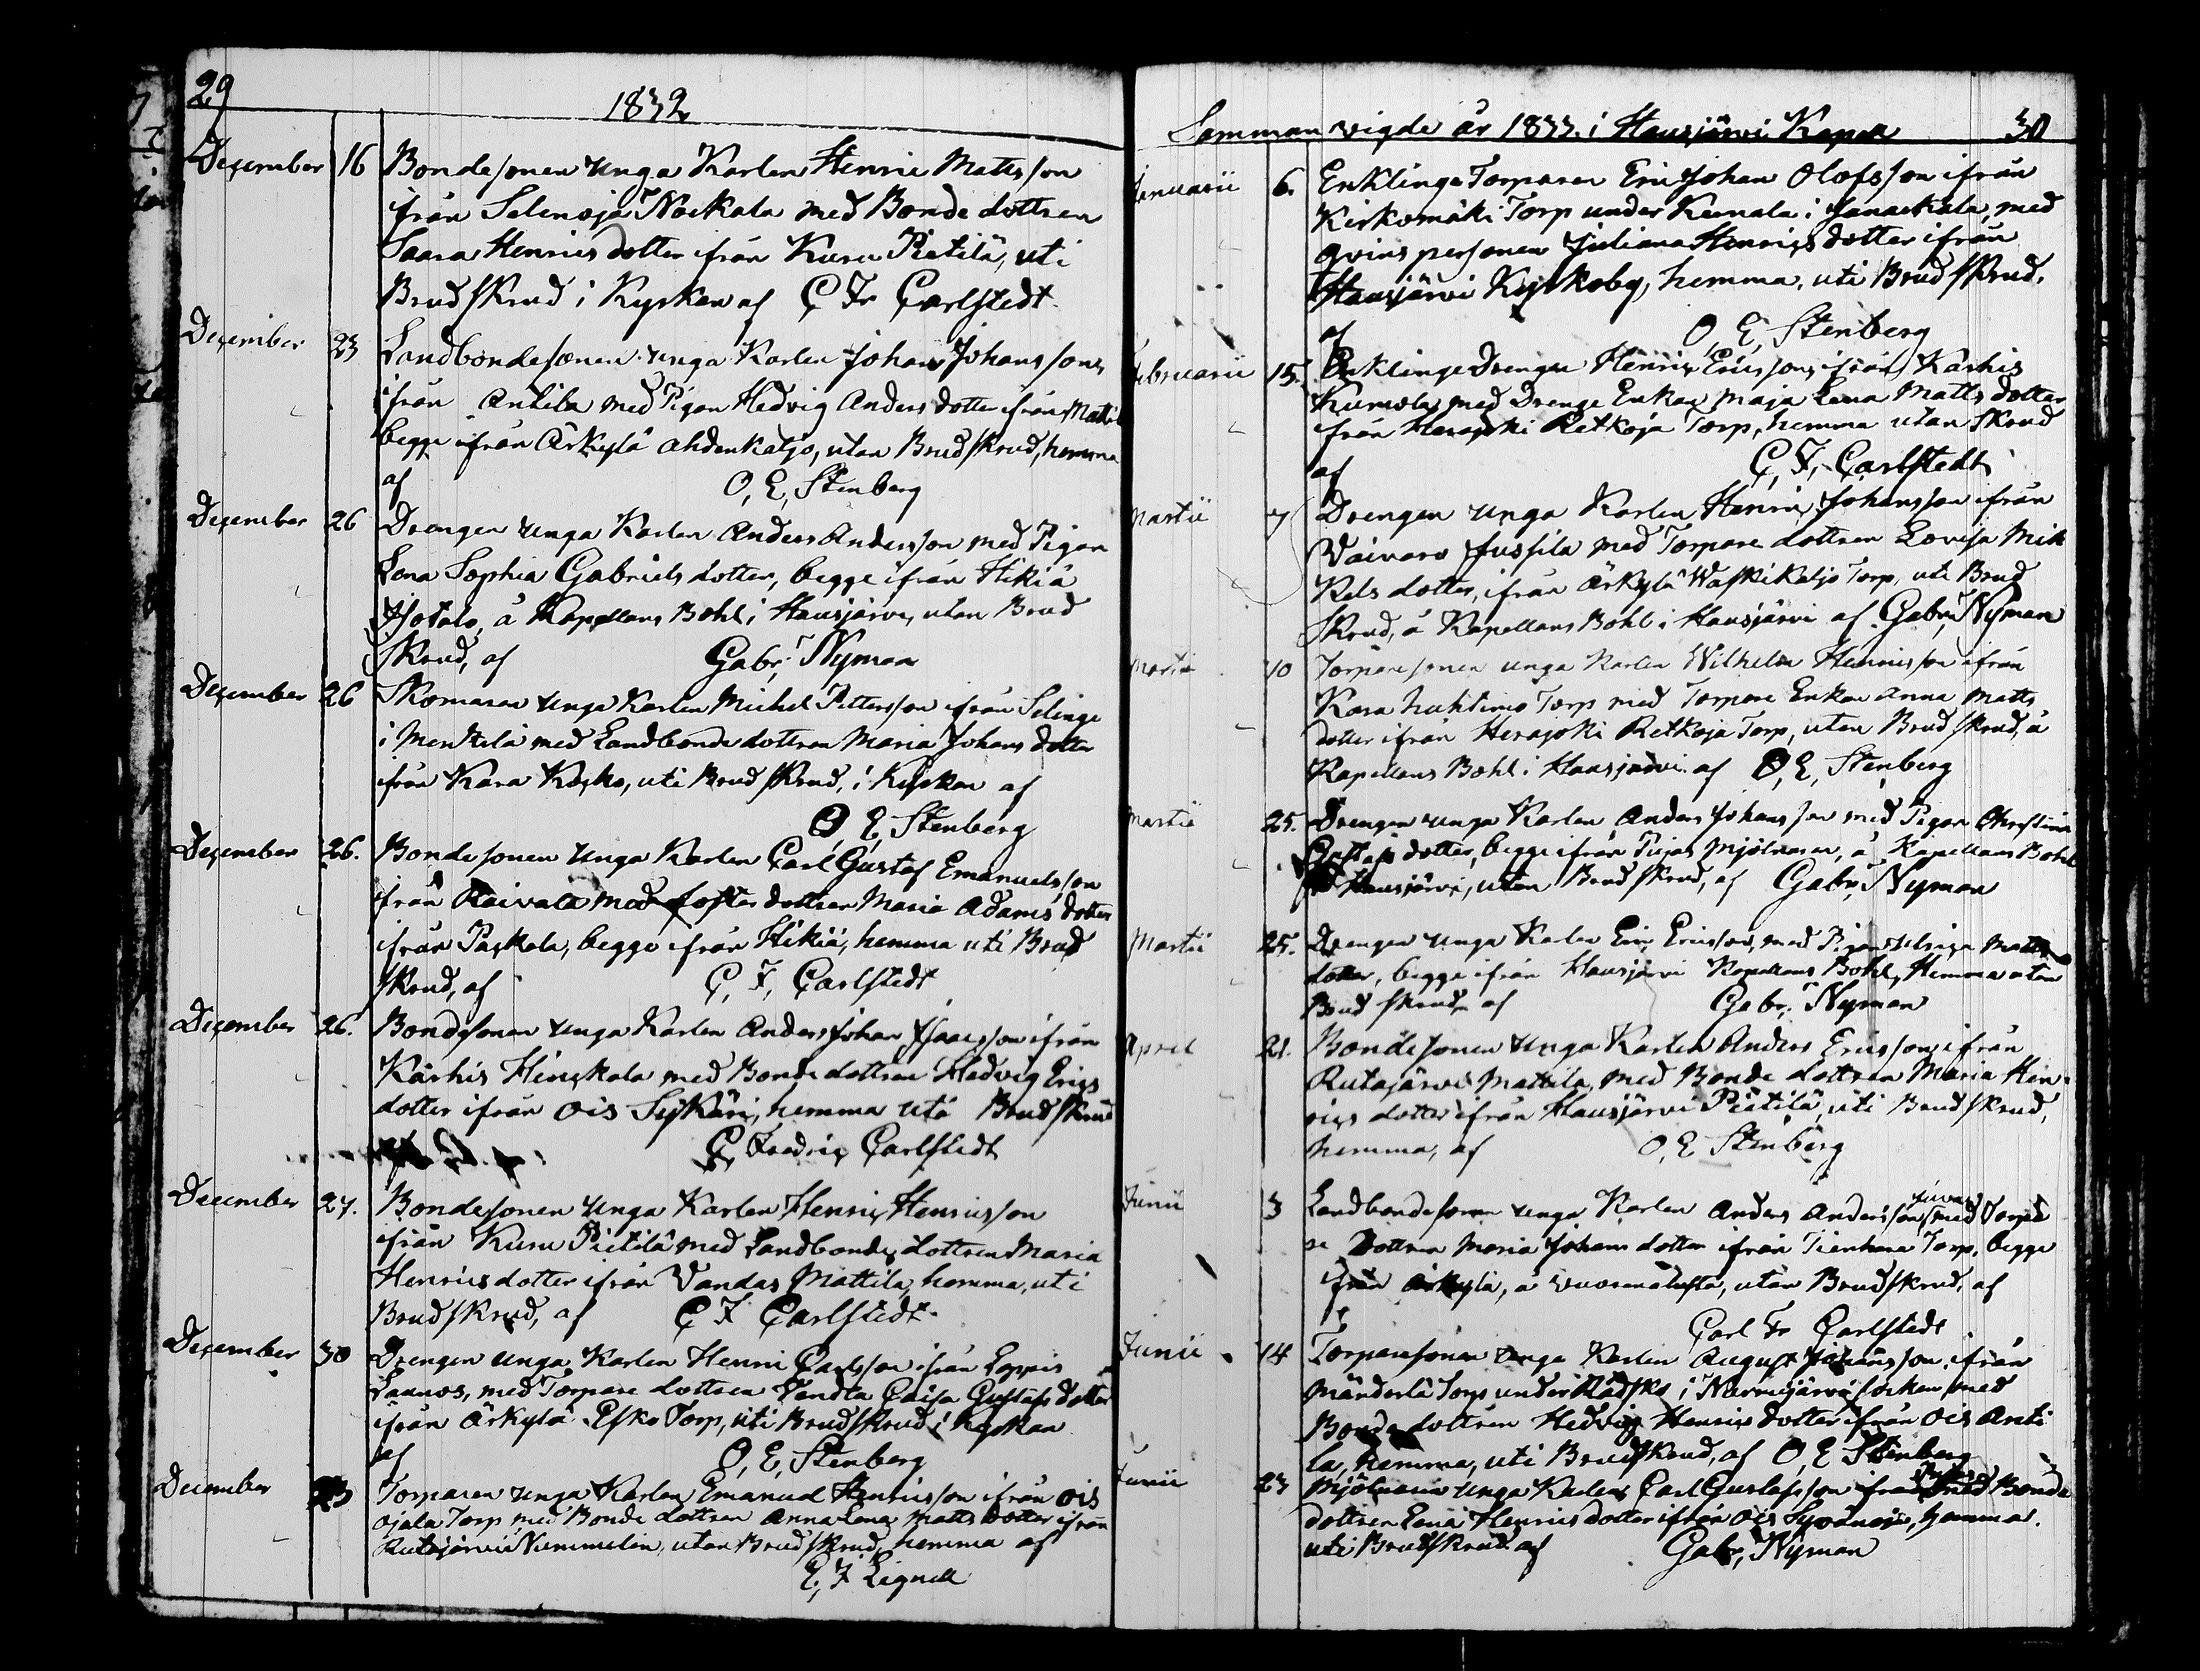 29
1832
December 16 Bondesonen unga Karlen Henric Mattsson
ifrån Selenoja Nockala med Bonde dottren
Saara Henrics dotter ifrån Kuru Pietilä, uti
Brudskrud i Kyrkan af C Fr Carlstedt
December 23 Landbondesonen unga Karlen Johan Johansson,
ifrån Antila med Pigan Hedvig Anders dotter ifrån
begge ifrån Ärkylä Ahdenkaljo, utan Brudskrud, hemma
af O, E, Stenberg
December 26 Drengen unga Karlen Anders Andersson med Pigan
Lena Sophia Gabriels dotter, begge ifrån Hikiä
Hotalo, å Kapellans Bohl i Hausjärvi, utan Brud
skrud, af Gabr. Nyman
December 26 Skomaren unga Karlen Michel Pettersson ifrån Selinge
i Menkela med Landbonde dottren Maria Johans dotter
ifrån Kara Kosko, uti Brudskrud, i Kyrkan af
O, E, Stenberg
December 26. Bondesonen unga Karlen Carl Gustaf Emanuelsson
ifrån Raivala med foster dottren Maria Adams dotter
ifrån Paskala, begge ifrån Hikiä, hemma uti Brud
skrud, af C, F, Carlstedt
December 26. Bondesonen unga Karlen Anders Johan Isaacsson ifrån
Karhis Hinskala med Bonde dottren Hedvig Erics
dotter ifrån Ois Sykäri, hemma uti Brudskrud
C, Fredric Carlstedt
December 27. Bondesonen unga Karlen Henric Henricsson
ifrån Kuru Pietilä med Landbonde dottren Maria
Henrics dotter ifrån Vandas Mattila, hemma, uti
Brudskrud, af C F Carlstedt.
December 30 Drengen unga Karlen Henric Carlsson ifrån Loppis
Launos, med Torpare dottren Vendta Caisa Gustafs dotter
ifrån Ärkylä Esko Torp, uti Brudskrud i Kyrkan
af O, E, Stenberg
December 23 Torparen unga Karlen Emanuel Henricsson ifrån Ois
Ojala Torp med Bonde dottren Anna Lena Matts dotter ifrån
Rutajärvi Nummelin, utan Brudskrud, hemma af
E, F Lignell
Samman vigde år 1833 i Hausjärvi Kapell 30
Januarii 6. Enklinge Torparen Eric Johan Olofsson ifrån
Kirkomäki Torp under Kernala i Janackala, med
qvins personen Juliana Henrics dotter ifrån
Hausjärvi Kyrkoby, hemma, uti Brudskrud.
af O, E, Stenberg
Februarii 15. Enklinge Drengen Henric Ericsson, ifrån Karhis
Kumola, med Drenge Enkan Maja Lena Matts dotter
ifrån Herajoki Retkoja Torp, hemma utan Skrud
af C, F, Carlstedt
Martii 7 Drengen unga Karlen Henric Johansson ifrån
Vaivaro Jussila med Torpare dottren Lovisa Mik
kels dotter, ifrån Ärkylä Waskikaljo Torp, uti Brud
skrud, å Kapellans Bohl i Hausjärvi af Gabr. Nyman
Martii 10 Torparesonen unga Karlen Wilhelm Henricsson ifrån
Kara huhtimo Torp med Torpare Enkan Anna Matts
dotter ifrån Herajoki Retkoja Torp, utan Brudskrud, å
Kapellans Bohl i Hausjärvi af O, E, Stenberg
Martii 25. Drengen unga Karlen Anders Johansson med Pigan Christina
Gustafs dotter, begge ifrån Pujas Mjölnaren, å Kapellans Bohl
i Hausjärvi, utan Brudskrud, af Gabr, Nyman
Martii 25. Drengen unga Karlen Eric Ericsson, med Pigan Ulrica Matts
dotter, begge ifrån Hausjärvi Kapellans Bohl, Hemma utan
Brud skrud af Gabr. Nyman
April 21. Bondesonen unga Karlen Anders Ericsson, ifrån
Rutajärvi Mattila, med Bonde dottren Maria Hen-
rics dotter ifrån Hausjärvi Pietilä, uti Brudskrud,
hemma, af O, E Stenberg
Junii 3 Landbondesonen unga Karlen Anders Andersson med Torpa
re Dottren Maria Johans dotter ifrån Tienhara Torp, begge
ifrån Ärkylä, å utan Brudskrud, af
Carl Fr Carlstedt
Junii 14 Torparesonen unga Karlen August Johansson, ifrån
Mänderlä Torp under Rådsko i Nurmijärvi socken med
Bonde dottren Hedvig Henrics dotter ifrån Ois Anti
la, hemma, uti Brudskrud, af O, E Stenberg
Junii 23 Mjölnaren unga Karlen Carl Gustafsson ifrån med Bonde
dottren Lena Henrics dotter ifrån Ois Syvänoja, hemma.
uti Brudskrud af Gabr, Nyman